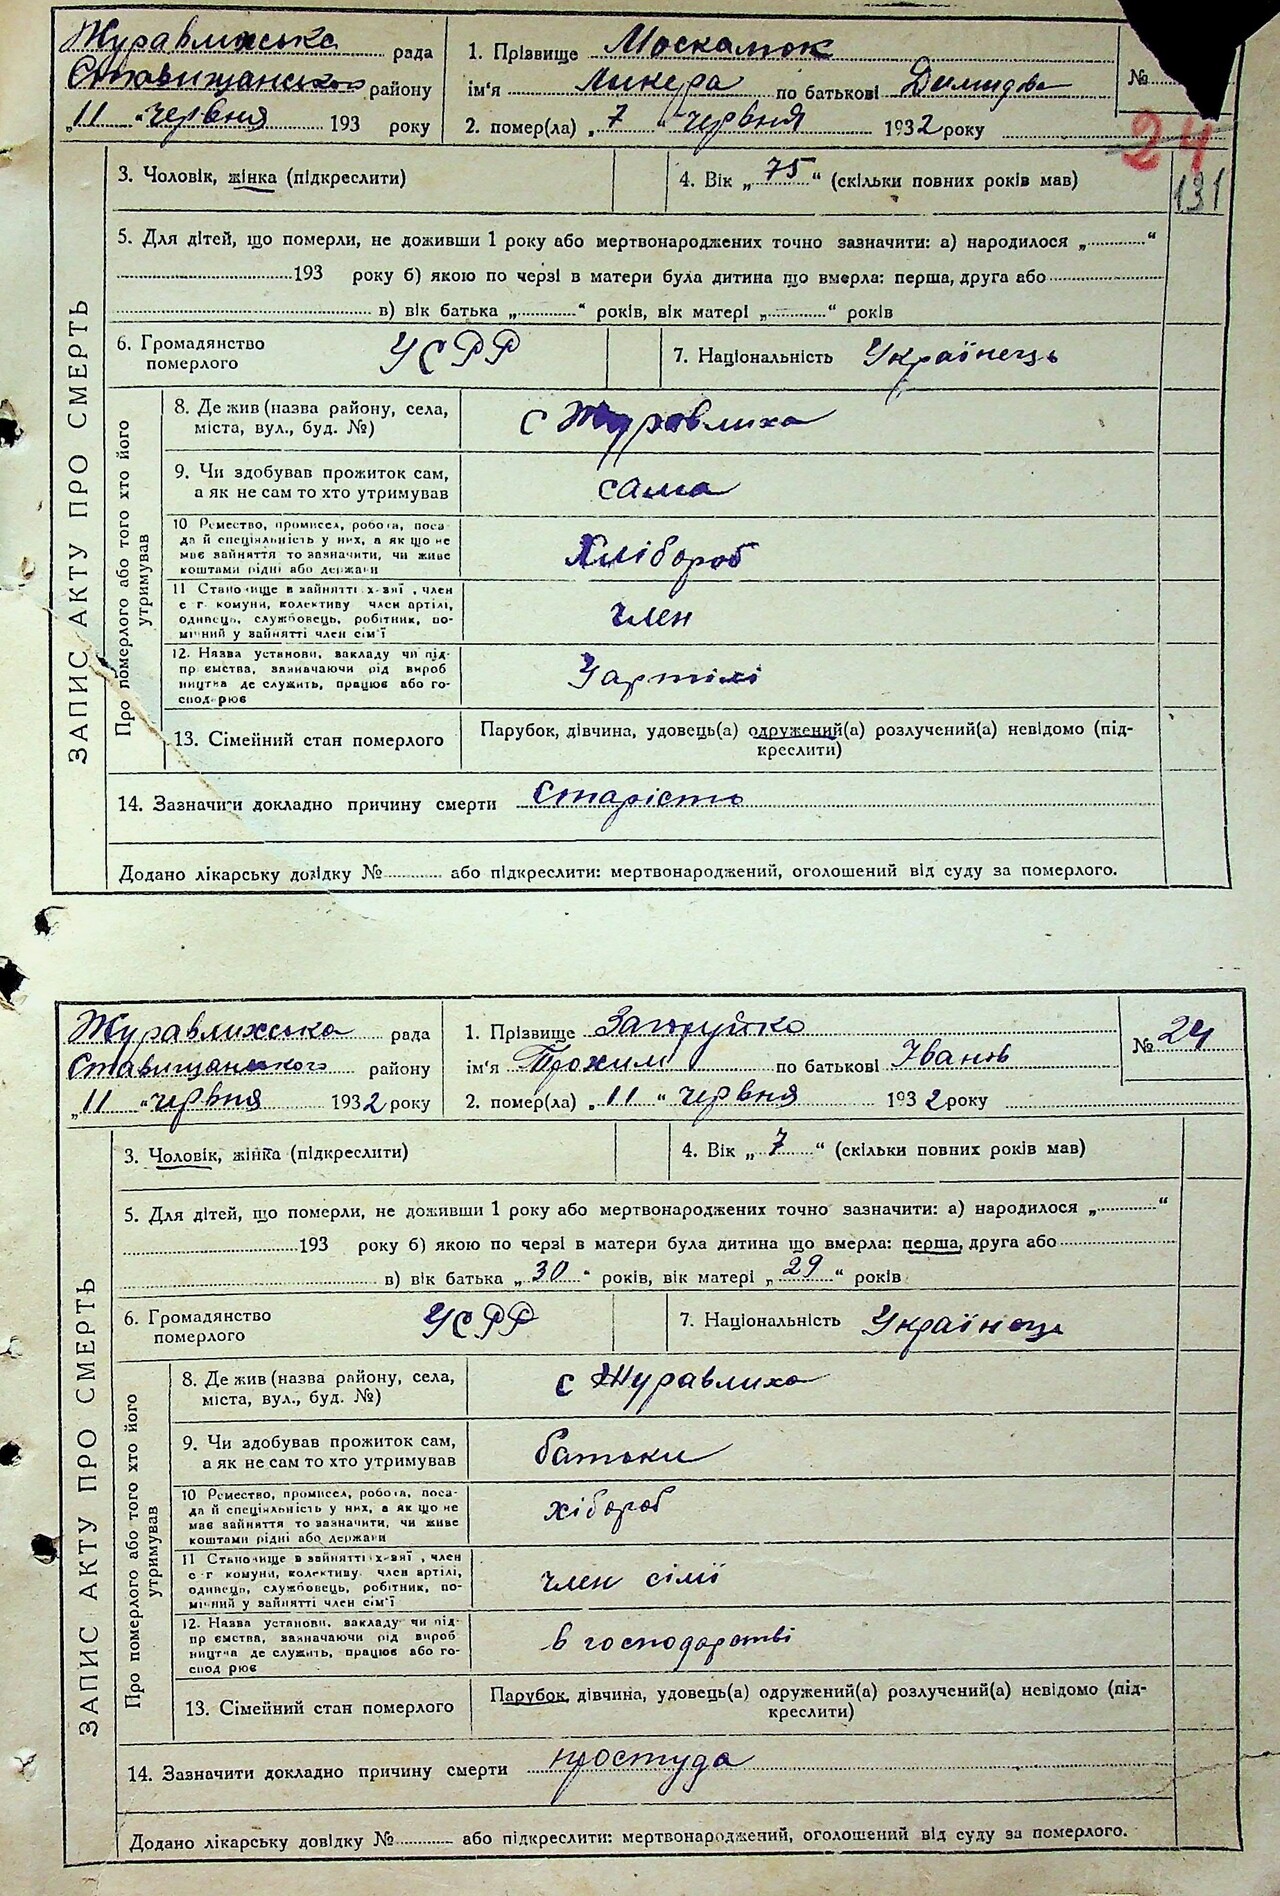 Журавлихська рада
Ставищанського району
„11“ червня 193 року
1. Прізвище Москалюк
ім'я Ликера по батькові Демидів
2. помер(ла) „7“ червня 1932 року
№
24
131
ЗАПИС АКТУ ПРО СМЕРТЬ
3. Чоловік, жінка (підкреслити)
4. Вік „75“ (скільки повних років мав)
5. Для дітей, що померли, не доживши 1 року або мертвонароджених точно зазначити: а) народилося „ “
193 року б) якою по черзі в матери була дитина що вмерла: перша, друга або
в) вік батька „ “ років, вік матері „ “ років
6. Громадянство померлого
УСРР
7. Національність Українець
Про померлого або того хто його утримував
8. Де жив (назва району, села,
міста, вул., буд. №)
с Журавлиха
9. Чи здобував прожиток сам,
а як не сам то хто утримував
сама
10 Ремество, промисел, робота, поса-
да й спеціяльність у них, а як що не
має зайняття то зазначити, чи живе
коштами рідні або держави
Хлібороб
11 Становище в зайнятті х-вяї, член
с г. комуни, колективу член артілі,
одинець, службовець, робітник, по-
мічний у зайнятті член сім'ї
член
12. Назва установи, закладу чи під-
приємства, зазначаючи рід вироб
ництва де служить, працює або го-
сподарює
Уартілі
13. Сімейний стан померлого
Парубок, дівчина, удовець(а) одружений(а) розлучений(а) невідомо (під-
креслити)
14. Зазначити докладно причину смерти старість
Додано лікарську довідку № або підкреслити: мертвонароджений, оголошений від суду за померлого.
Журавлихська рада
Ставищанського району
„11“ червня 1932 року
1. Прізвище Загоруйко
ім'я Трохим по батькові Іванов
2. помер(ла) „11“ червня 1932 року
№ 24
ЗАПИС АКТУ ПРО СМЕРТЬ
3. Чоловік, жінка (підкреслити)
4. Вік „7“ (скільки повних років мав)
5. Для дітей, що померли, не доживши 1 року або мертвонароджених точно зазначити: а) народилося „ “
193 року б) якою по черзі в матери була дитина що вмерла: перша, друга або
в) вік батька „30“ років, вік матері „29“ років
6. Громадянство померлого
УСРР
7. Національність Українець
Про померлого або того хто його утримував
8. Де жив (назва району, села,
міста, вул., буд. №)
с Журавлиха
9. Чи здобував прожиток сам,
а як не сам то хто утримував
батьки
10 Ремество, промисел, робота, поса-
да й спеціяльність у них, а як що не
має зайняття то зазначити, чи живе
коштами рідні або держави
хібороб
11 Становище в зайнятті х-вяї, член
с г комуни, колективу. член артілі,
одинець, службовець, робітник, по-
мічний у зайнятті член сім'ї
член сімї
12. Назва установи, закладу чи під-
приємства, зазначаючи рід вироб
ництва де служить, працює або го-
сподарює
в господарстві
13. Сімейний стан померлого
Парубок, дівчина, удовець(а) одружений(а) розлучений(а) невідомо (під-
креслити)
14. Зазначити докладно причину смерти простуда
Додано лікарську довідку № або підкреслити: мертвонароджений, оголошений від суду за померлого.